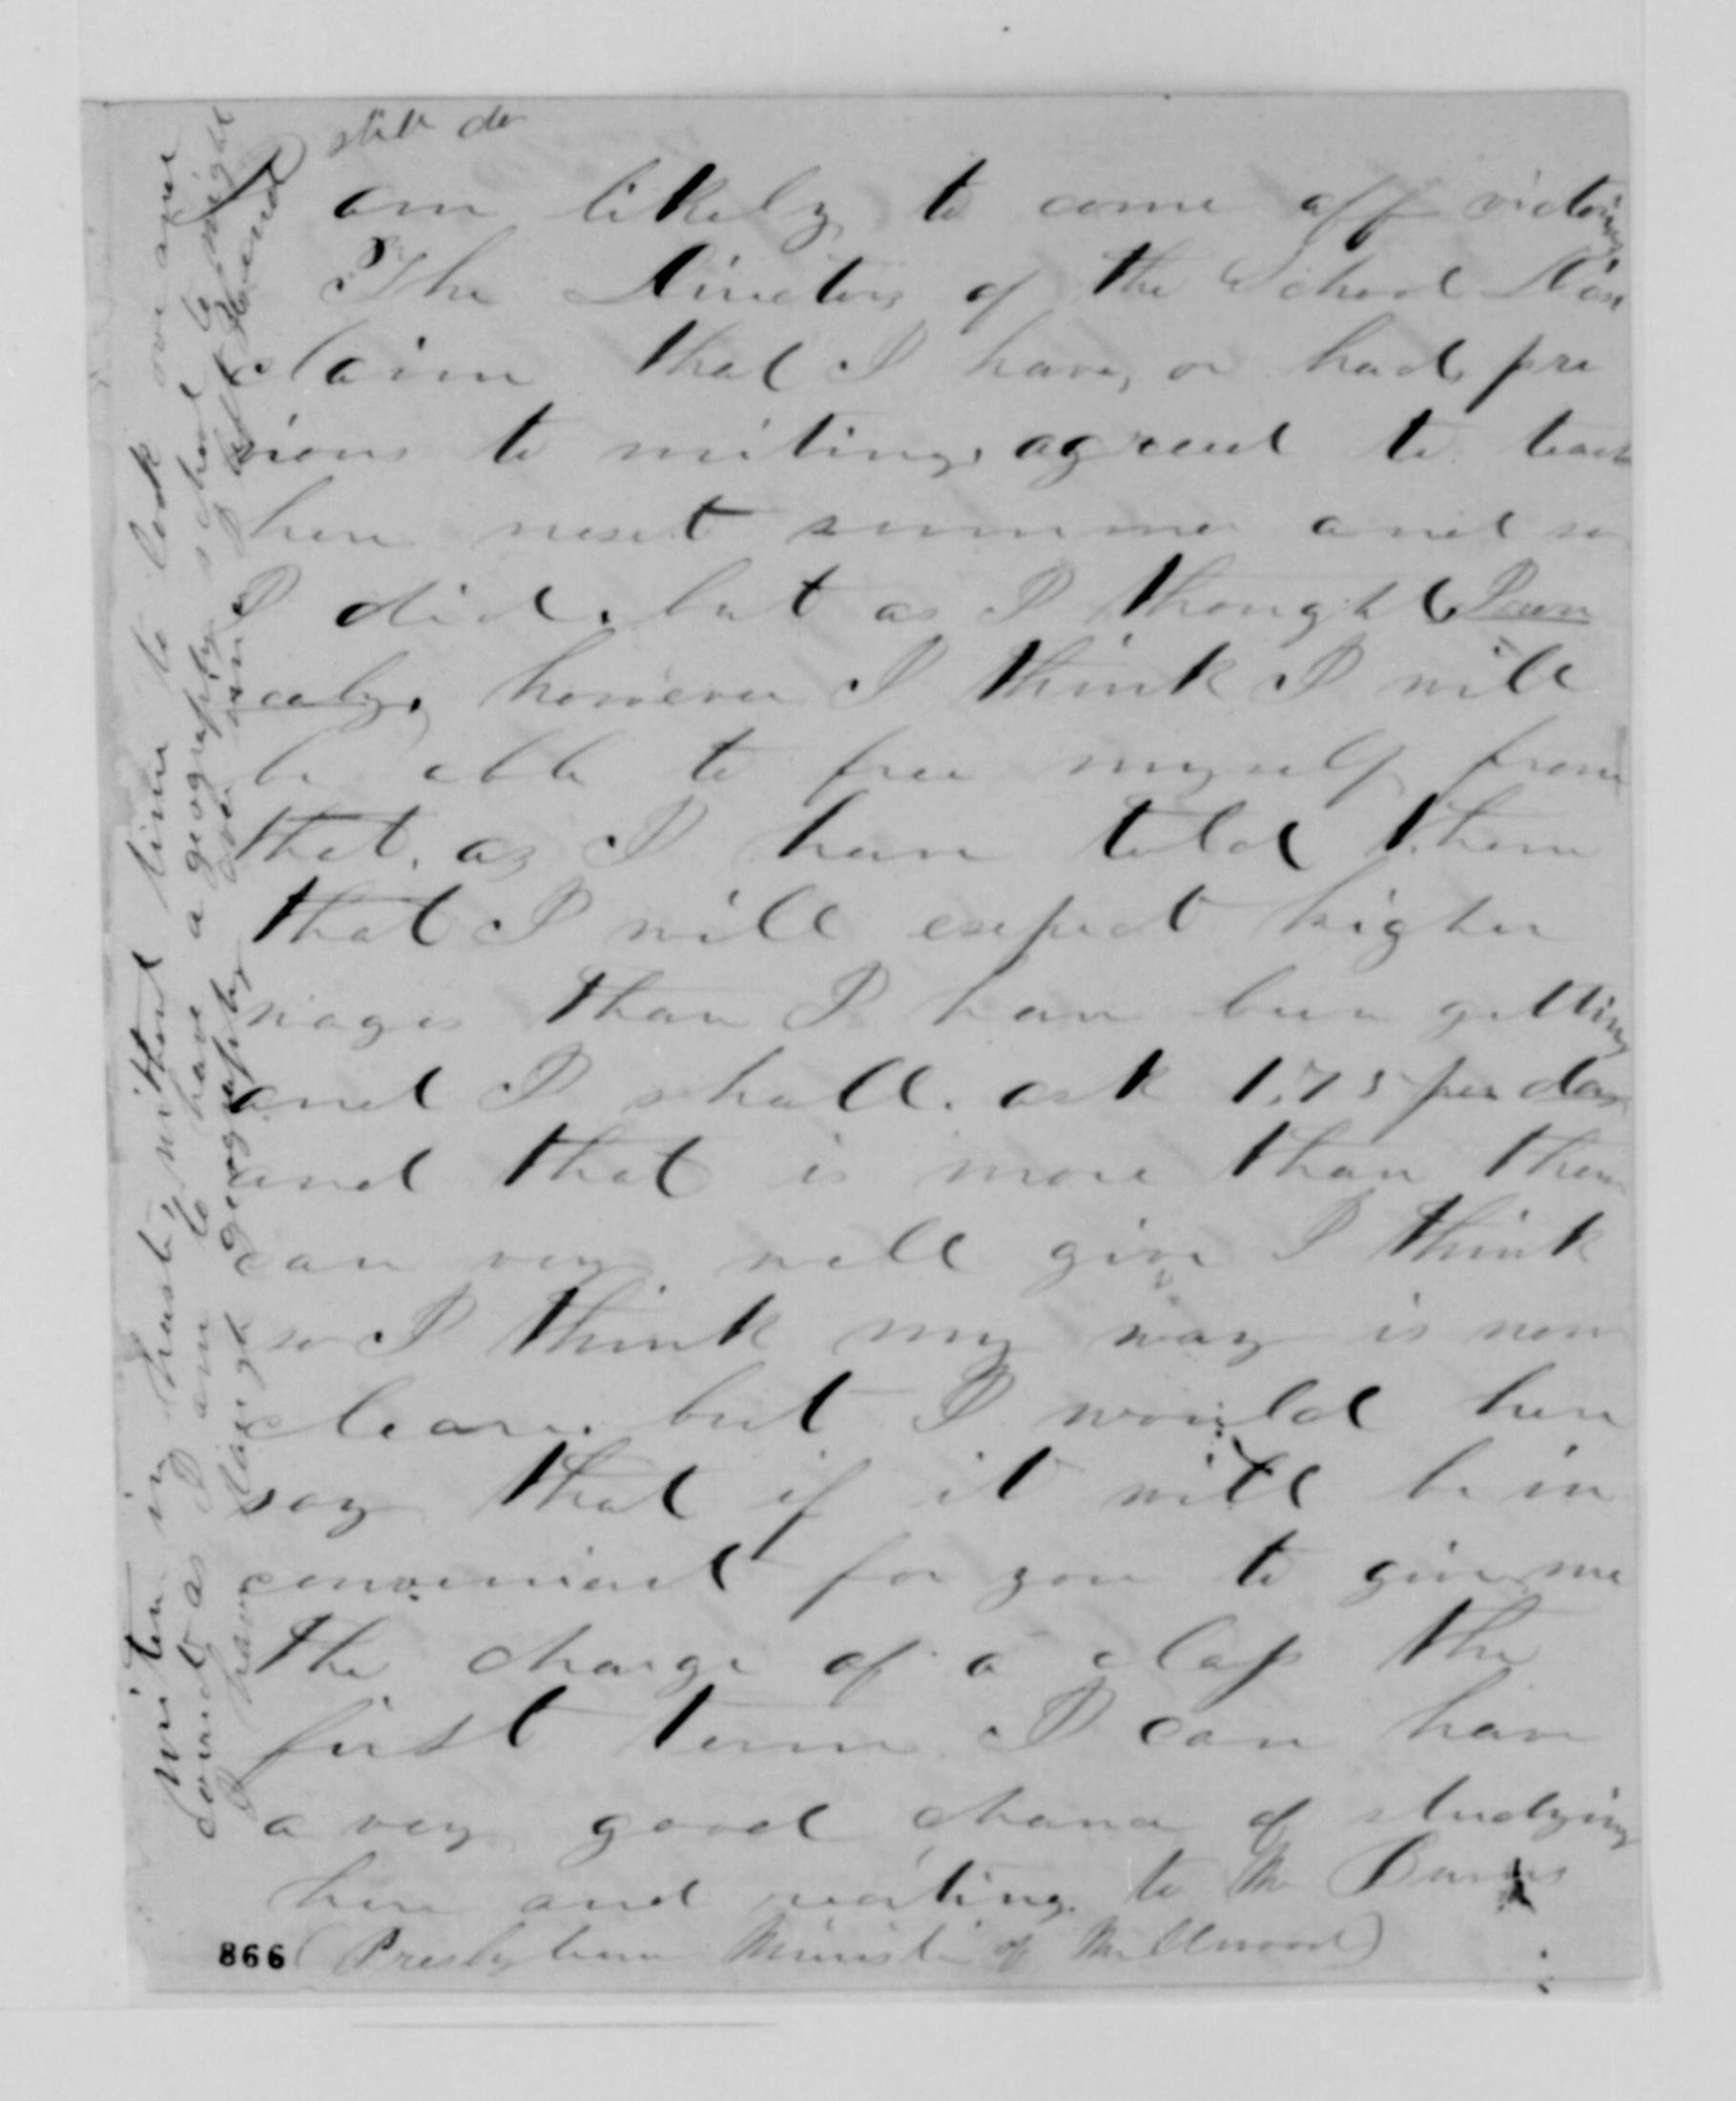 still do
I am likely to come off victorious
The Directors of the School
claim that I have, or had, pre
vious to writing, agreed to teach
here next summer and so
I did, but as I thought
however I think I will
be able to free myself from
that, as I have told them
that I will expect higher
wages than I have been getting
and I shall ask 1.75 per day
and that is more than them
can very well give I think
so I think my way is now
clear. but I would here
say that if it will be in
convenient for you to give me
the charge of a class the
first term I can have
a very good chance of studying
here and reciting to Mr Burns
(Presbyterian Minister of Millwood)
866
Written in haste, without time to look over
as I am to have a geography school to night
I have taught geography over